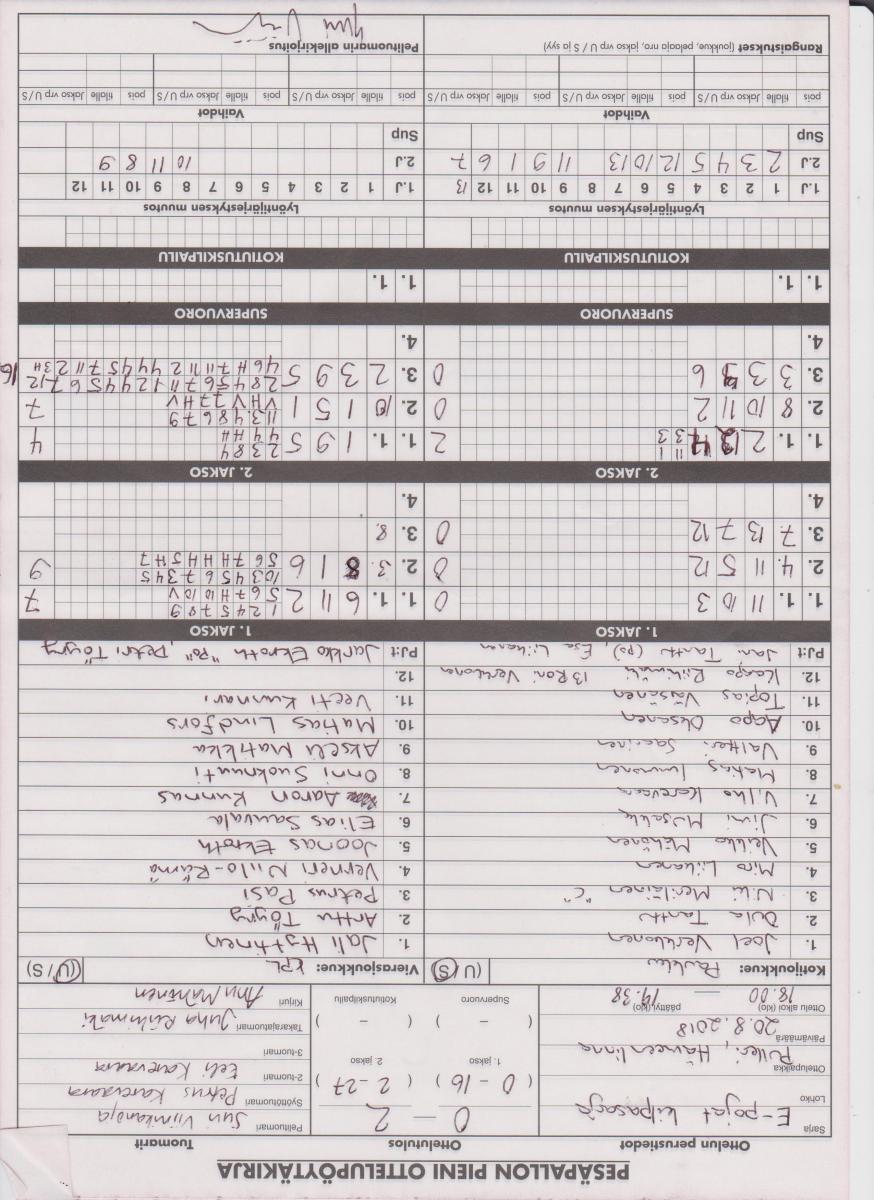 PESÄPALLON PIENI OTTELUPÖYTÄKIRJA
Ottelun perustiedot
Ottelutulos
Tuomarit
Sarja
E-pojat kilpasarja
Lohko
Ottelupaikka
Pulleri, Hämeenlinna
Päivämäärä
20.8.2018
Ottelu alkoi (klo)
päättyi (klo)
18.00 — 19.38
0 — 2
1. jakso
2. jakso
( 0 - 16 ) ( 2 - 27 )
Supervuoro
Kotiutuskilpailu
( - ) ( - )
Pelituomari
Syöttötuomari
Petrus Karevaara
2-tuomari
Eeli Karevaara
3-tuomari
Takarajatuomari
Juha Riihimäki
Kirjuri
Anu Mahtinen
Kotijoukkue:
(U / S)
Vierasjoukkue: KPL
(U / S)
1. Joel Verkkonen
1. Jali Hyttinen
2. Tanttu
2. Arttu Töyry
3. Niki Meriläinen "C"
3. Petrus Pasi
4. Miro Liikanen
4. Verneri Niilo-Rämä
5. Veikko Möhönen
5. Joonas Ekroth
6. Jimi
6. Elias Sauvala
7. Vilho Karevaara
7. Aaron Kunnas
8. Matias Immonen
8. Onni Suoknuuti
9. Valtteri Saarinen
9. Akseli Matikka
10. Aapo Oksanen
10. Matias Lindfors
11. Topias Väisänen
11. Veeti Kunnari
12. Kaapo Riihimäki 13 Roni Verkkonen
12.
PJ:t Jani Tanttu (pj), Esa Liikanen
PJ:t Jarkko Ekroth "PJ", Petri Töyry
1. JAKSO
1. JAKSO
1. 1. 11 10 3 0
1. 1. 6 11 2 1 2 4 5 7 8 9 7
5 6 7 H 10 10 V
2. 4. 11 5 12 0
2. 3. 8 1 6 10 3 4 5 6 7 3 4 5 9
5 6 7 H H H 5 H 7
3. 7 13 7 12 0
3. 8.
4.
4.
2. JAKSO
2. JAKSO
1. 1. 2 12 4 11 1 2
3 3 3
1. 1. 1 9 5 2 3 8 4 4
4 4 H H
2. 8 10 11 2 0
2. 10 1 5 1 11 3 4 8 6 7 9 7
V H V 7 7 H V
3. 3 3 6 0
3. 2 3 9 5 2 8 4 5 6 7 11 1 2 4 4 5 6 7 12 16
4 6 H 7 11 11 2 4 4 4 5 7 11 2 3H
4.
4.
SUPERVUORO
SUPERVUORO
1. 1.
1. 1.
KOTIUTUSKILPAILU
KOTIUTUSKILPAILU
Lyöntijärjestyksen muutos
Lyöntijärjestyksen muutos
1.J 1 2 3 4 5 6 7 8 9 10 11 12 13
1.J 1 2 3 4 5 6 7 8 9 10 11 12
2.J 2 3 4 5 12 10 13 11 9 1 6 7
2.J 10 11 8 9
Sup
Sup
Vaihdot
Vaihdot
pois tilalle jakso vrp U / S pois tilalle jakso vrp U / S pois tilalle jakso vrp U / S
pois tilalle jakso vrp U / S pois tilalle jakso vrp U / S
Rangaistukset (joukkue, nro, pelaaja, jakso vrp U / S ja syy)
Pelituomarin allekirjoitus